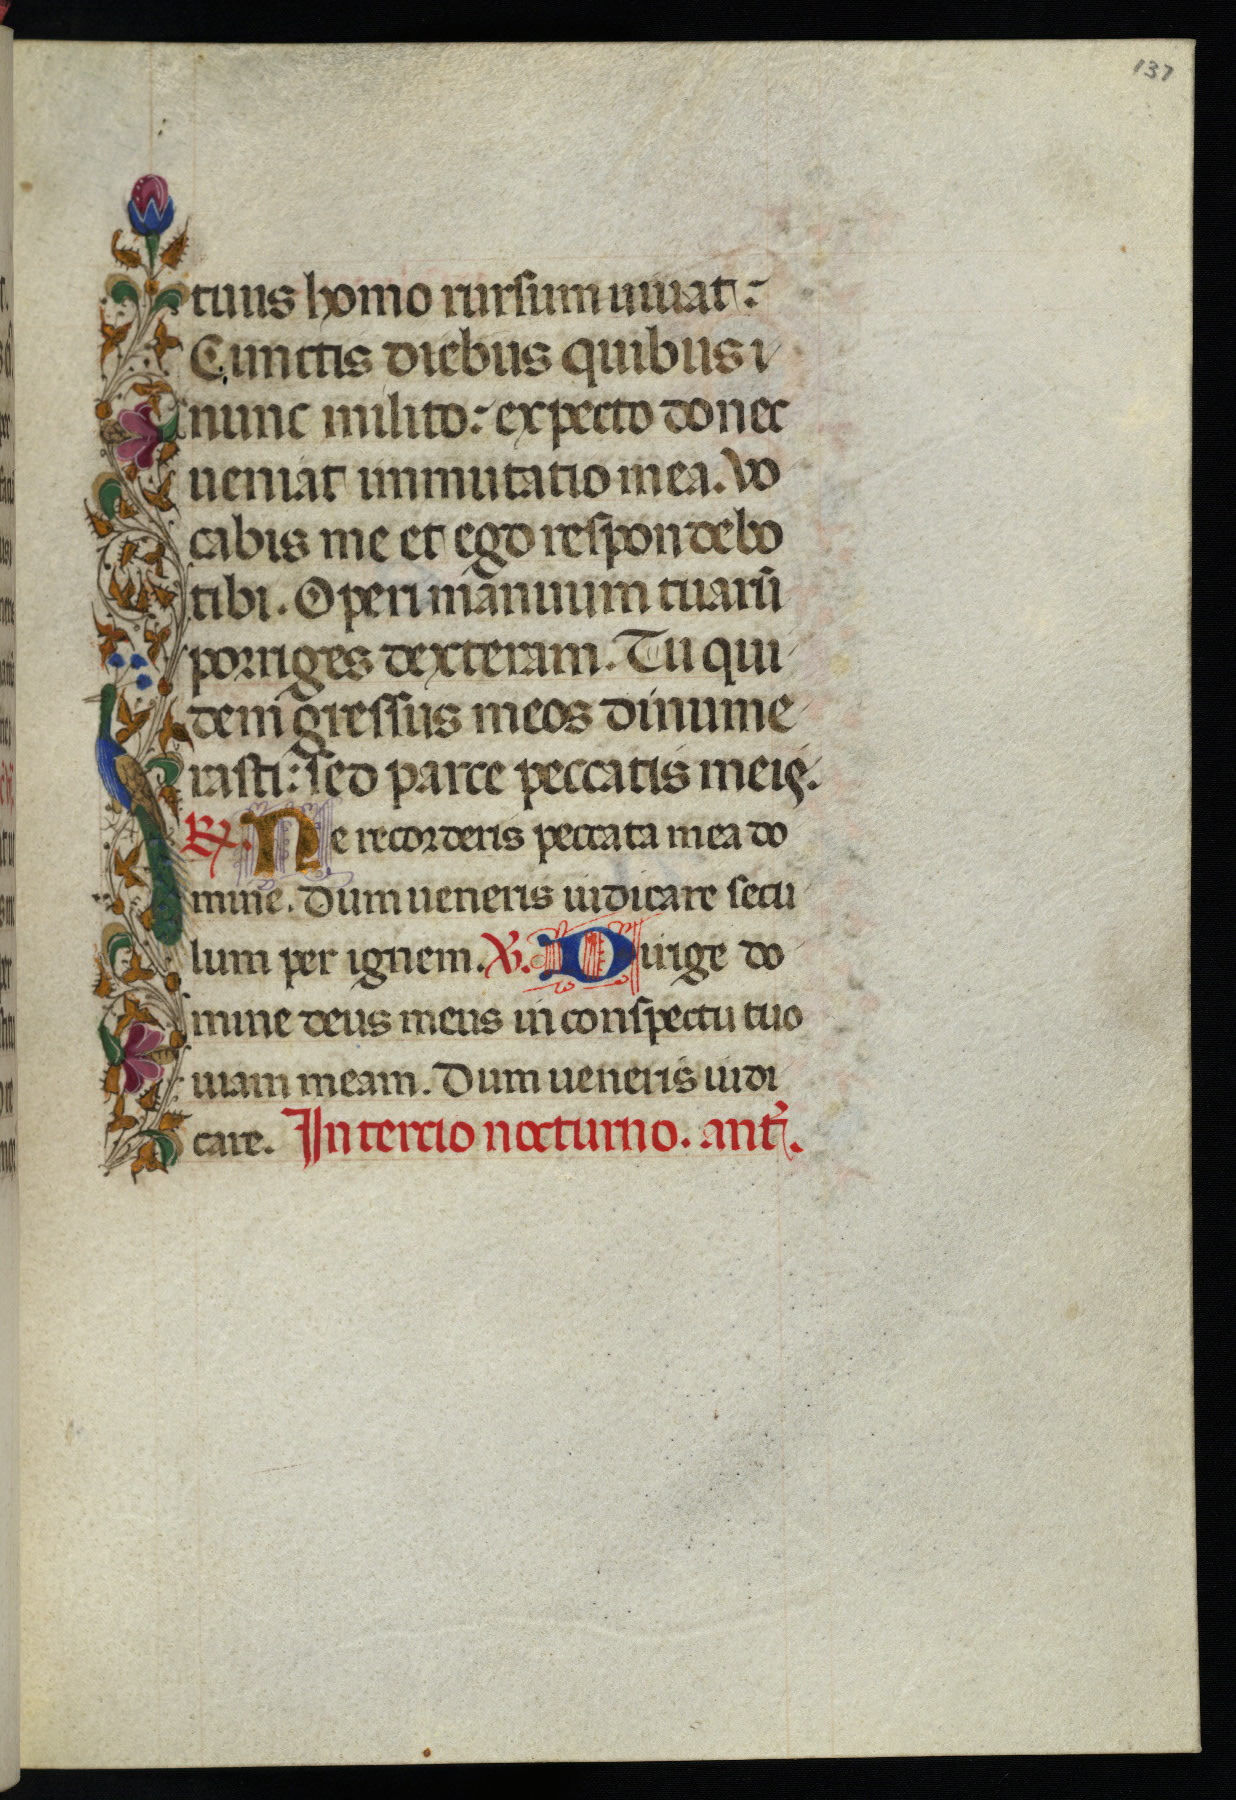 137
tuus homo rursum uiuat:
Cunctis diebus quibus i
nunc milito: expecto donec
ueniat immutatio mea. Vo
cabis me et ego respondebo
tibi. Operi manuum tuarū
porriges dexteram. Tu qui
dem gressus meos dinume
rasti: sed parce peccatis meis.
℟. Ne recorderis peccata mea do
mine. Dum ueneris iudicare secu
lum per ignem. ℣. Dirige do
mine deus meus in conspectu tuo
uiam meam. Dum ueneris iudi
care. In tercio nocturno. ant̄.